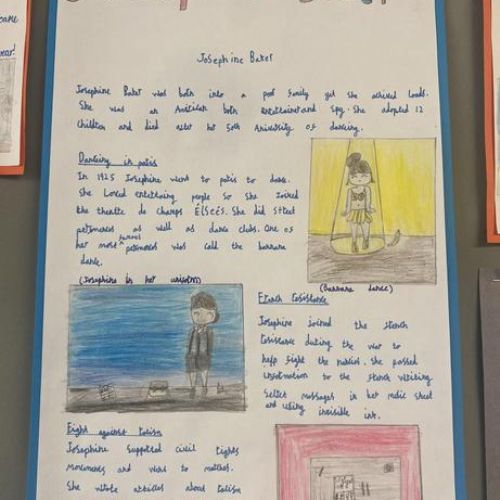 Josephine Baker
Josephine Baker was born into a poor family yet she achived loads.
She was an American born entertainer and spy. She adopted 12
children and died after her 50th Aniversity of dancing.
Dancing in paris
In 1925 Josephine went to paris to dance.
She Loved entertaining people so she joined
the theatre de champs Élseés. She did street
performances as well as dance clubs. One of
her most famous performences was calld the bannana
dance.
(Josephine in her uniform)
(Bannana dance)
French resistance
Josephine joined the french
resistance during the war to
help fight the nazies. She passed
information to the french writing
secret massages in her music sheet
and using invisible ink.
Fight against racism
Josephine supported civil rights
movments and went to marches.
She wrote articles about racism